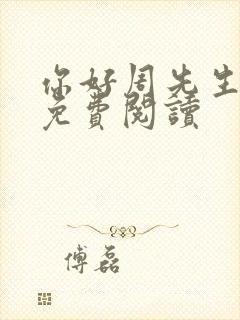 你好周先生
免費閱讀
傅磊